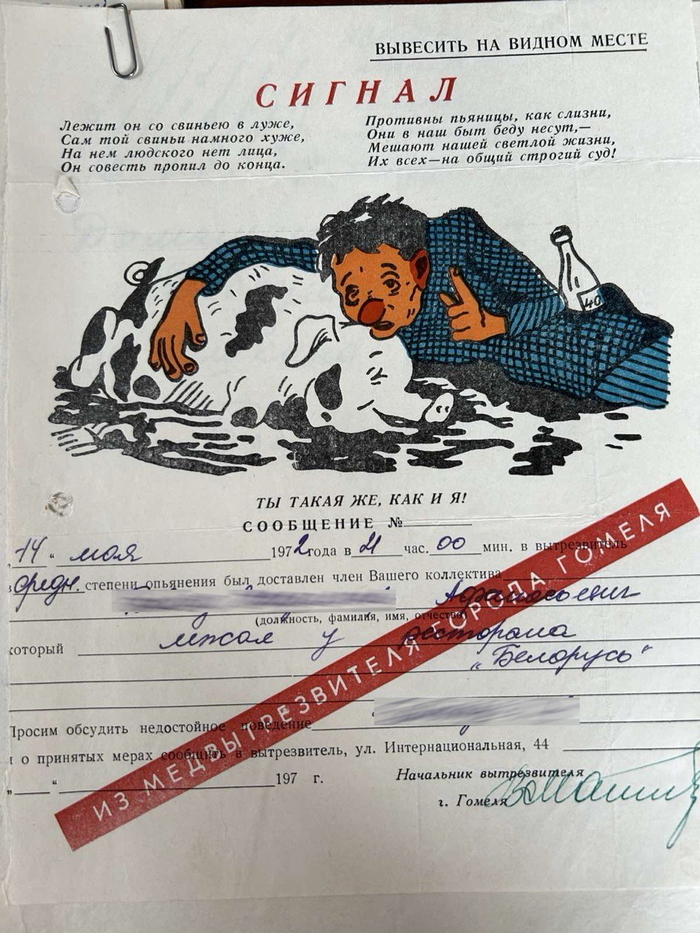 ВЫВЕСИТЬ НА ВИДНОМ МЕСТЕ
СИГНАЛ
Лежит он со свиньею в луже,
Сам той свиньи намного хуже,
На нем людского нет лица,
Он совесть пропил до конца.
Противны пьяницы, как слизни,
Они в наш быт беду несут,—
Мешают нашей светлой жизни,
Их всех—на общий строгий суд!
40
ТЫ ТАКАЯ ЖЕ, КАК И Я!
СООБЩЕНИЕ №
„14 " мая 1972 года в 21 час. 00 мин. в вытрезвитель
в средн. степени опьянения был доставлен член Вашего коллектива
(должность, фамилия, имя, отчество)
который лежал у ресторана
„Белорусь"
Просим обсудить недостойное поведение
и о принятых мерах сообщить в вытрезвитель, ул. Интернациональная, 44
„ " 197 г.
Начальник вытрезвителя
г. Гомеля
ИЗ МЕДВЫТРЕЗВИТЕЛЯ ГОРОДА ГОМЕЛЯ